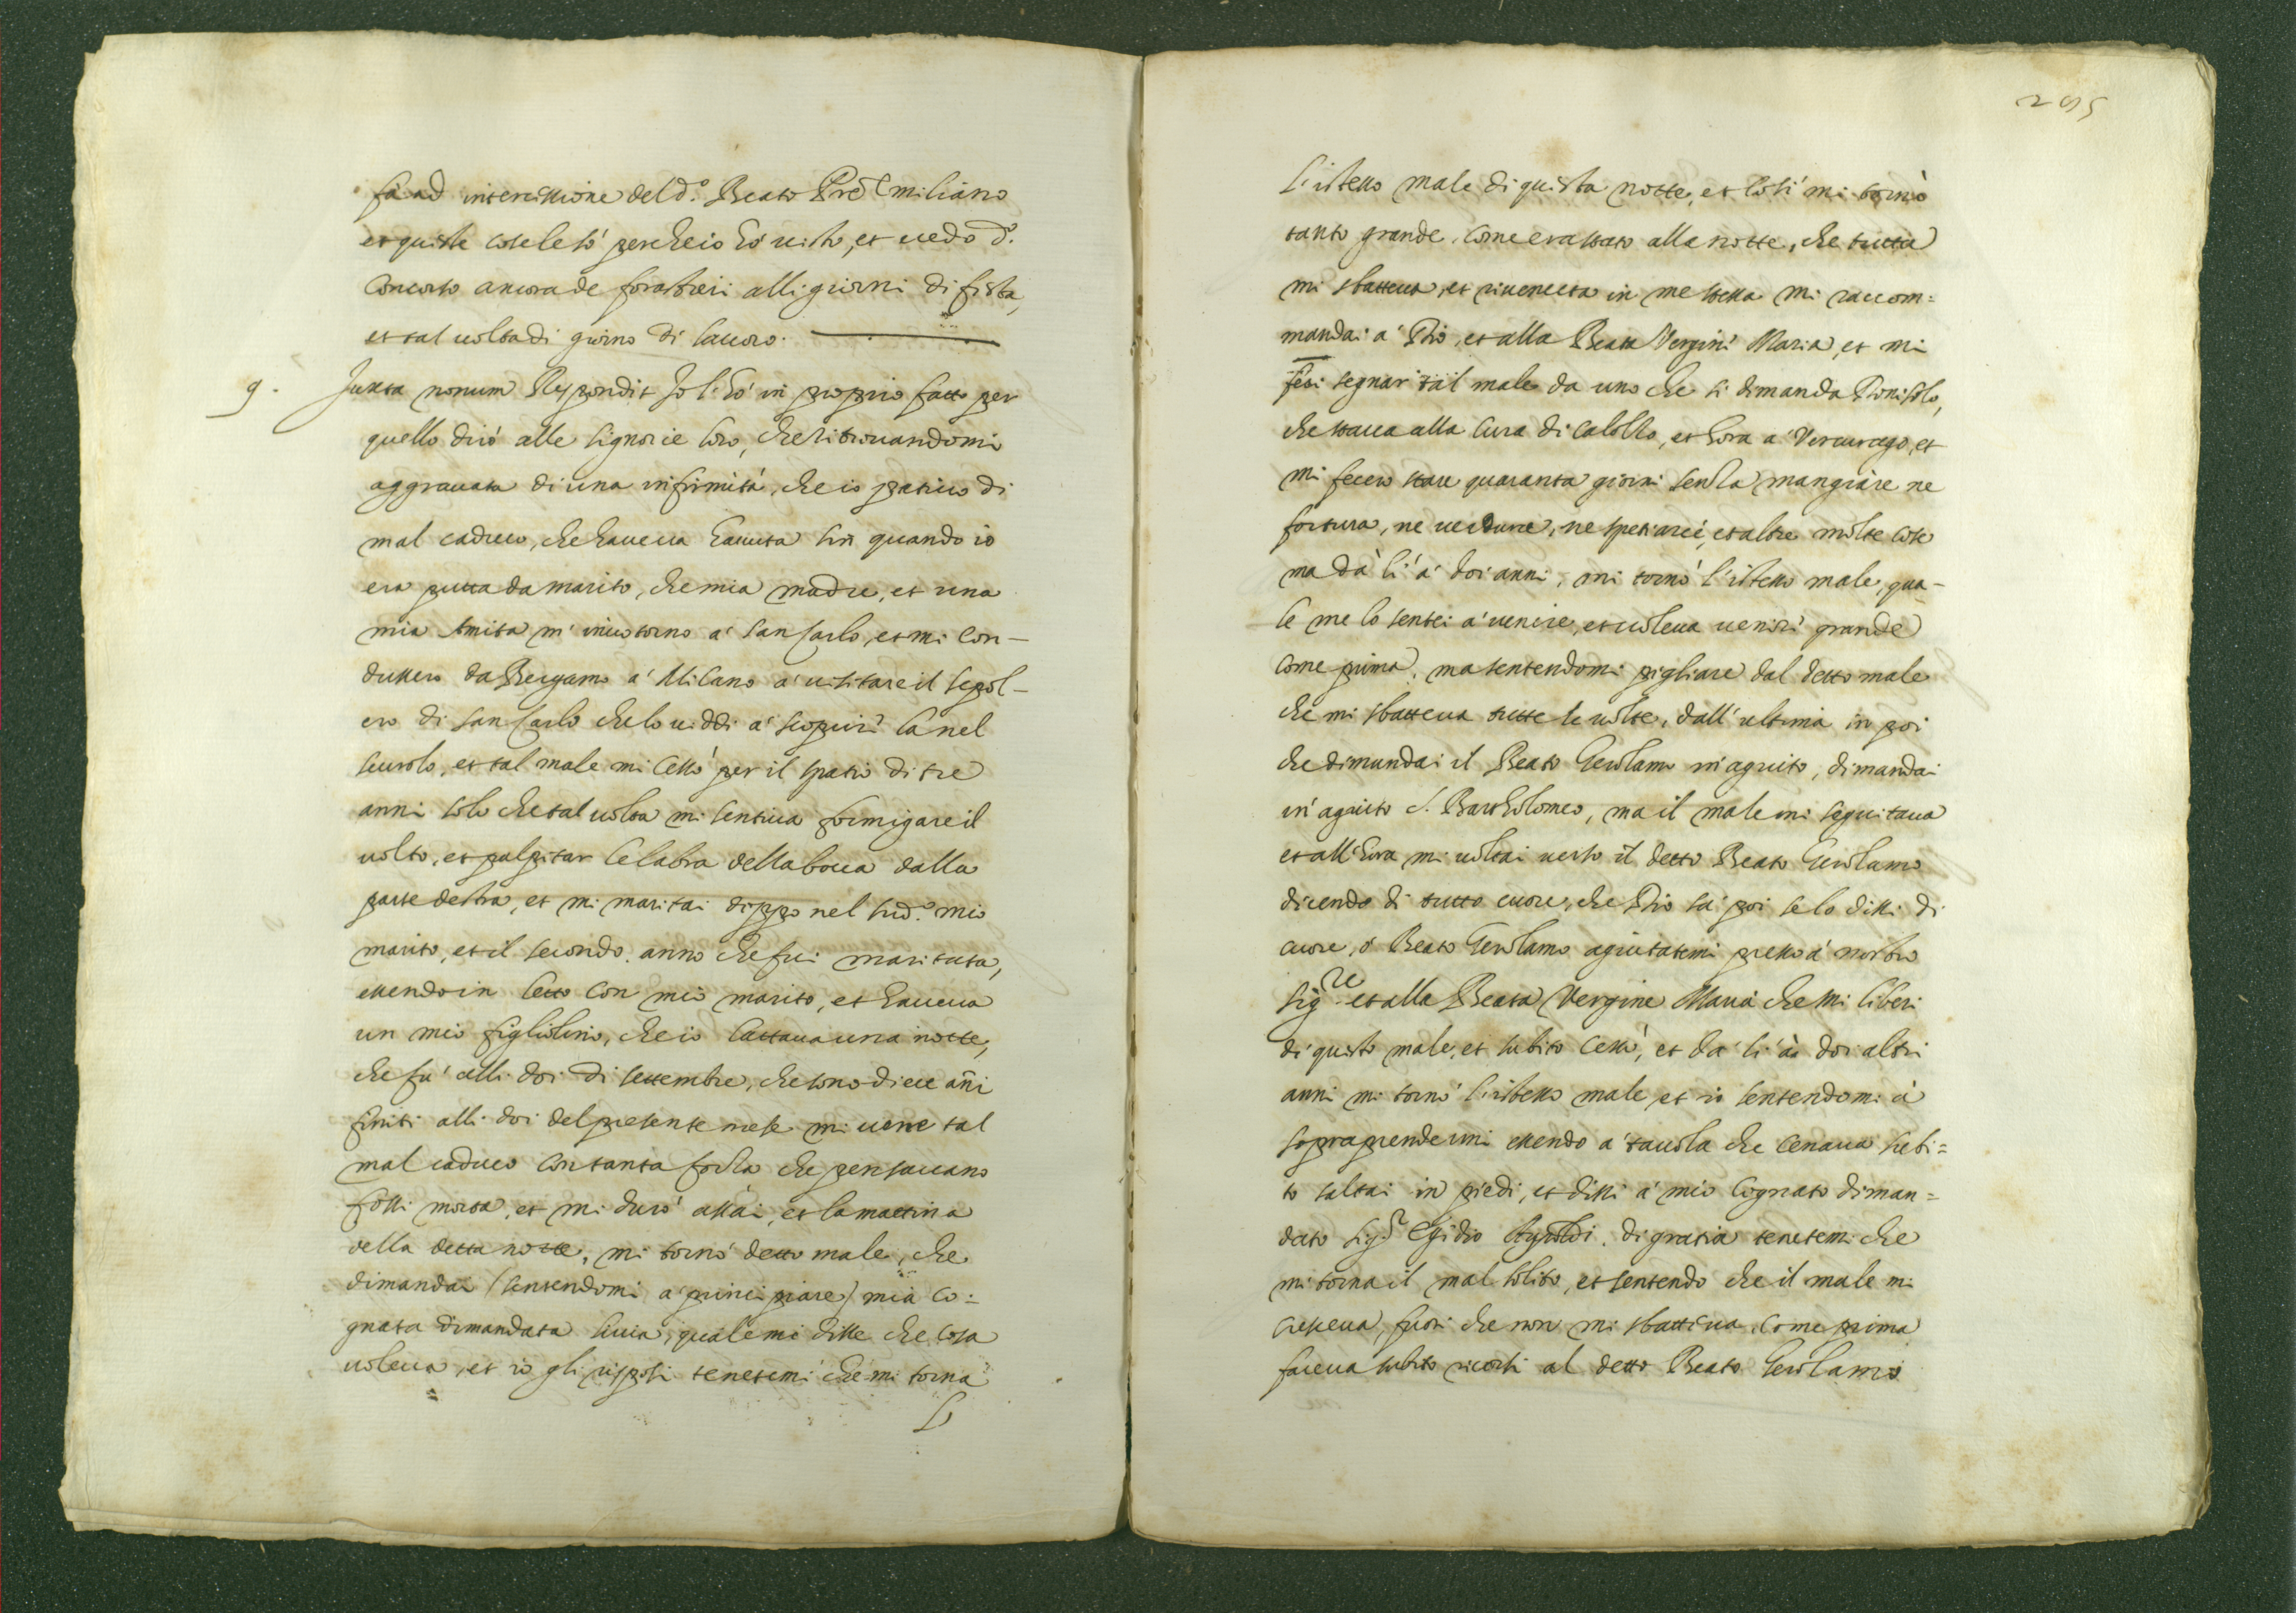 fà ad intercissione del d.º Beato Pre Emiliano
et quiste cose le sò perche io hò uisto, et uedo d.º
concorso ancora de forastieri alli giorni di fista,
et tal uolta di giorno di lauoro.
9. Juxta nonum Respondit Jo li hò in proprio fatto per
quello dirò alle Signorie loro, che ritrouandomi
aggrauata di una infirmità, che io patiuo di
mal caduco, che haueua hauuta sin quando io
era putta da marito, che mia madre, et una
mia Amita m' inuotorno à San Carlo, et mi con-
dussero da Bergamo à Milano à uisitare il sepol-
cro di San Carlo che lo uiddi à scoprire là nel
scurolo, et tal male mi cessò per il spatio di tre
anni solo che tal uolta mi sentiua formigare il
uolto, et palpitar le labra della bocca dalla
parte destra, et mi maritai doppo nel sud.º mio
marito, et il secondo anno che fui maritata,
essendo in letto con mio marito, et haueua
un mio figliolino, che io lattaua una notte,
che fu' alli doi di settembre, che sono diece ani
finiti alli doi del presente mese mi uene tal
mal caduco con tanta forza che pensauano
fossi morta, et mi durò assai, et la mattina
della detta notte, mi tornò detto male, che
dimandai (sentendomi à principiare) mia co=
gnata dimandata Liuia, quale mi disse che cosa
uoleua, et io gli risposi tenetemi che mi torna
l'
295
L'istesso male di quista notte, et così mi tornò
tanto grande, come era stato alla notte, che tutta
mi sbatteua, et riuenuta in me stessa mi raccom=
mandai à Dio, et alla Beata Vergine Maria, et mi
feci segnar tal male da uno che si dimanda Donisolo,
che staua alla Cura di Calolzo, et hora à Vercurago, et
mi fecero stare quaranta giorni senza mangiare ne
fortura, ne uerdure, ne spetiarie, et altre molte cose
ma dà lì à doi anni, mi tornò l'istesso male, qua-
le me lo sentei à uenire, et uoleua uenire grande
come prima, ma sentendomi pigliare dal detto male
che mi sbatteua tutte le uolte, dall' ultima in poi
che dimandai il Beato Gerolamo m' agiuto, dimandai
in' agiuto S. Bartholomeo, ma il male mi seguitaua
et all' hora mi uoltai uerso il detto Beato Gerolamo
dicendo di tutto cuore, che Dio sà poi se lo dissi di
cuore, ò Beato Gerolamo agiutatemi presso à nostro
Sig.re et alla Beata Vergine Maria che mi liberi
di quisto male, et subito cessò, et da lì à doi altri
anni mi tornò l'istesso male, et io sentendomi à
sopraprendermi essendo à tauola che cenaua subi=
to saltai in piedi, et dissi à mio Cognato diman=
dato Sig.r Egidio Ayroldi, di gratia tenetemi che
mi torna il mal solito, et sentendo che il male mi
cresceua, fuori che non mi sbatteua come prima
faceua subito ricorsi al detto Beato Gerolamo